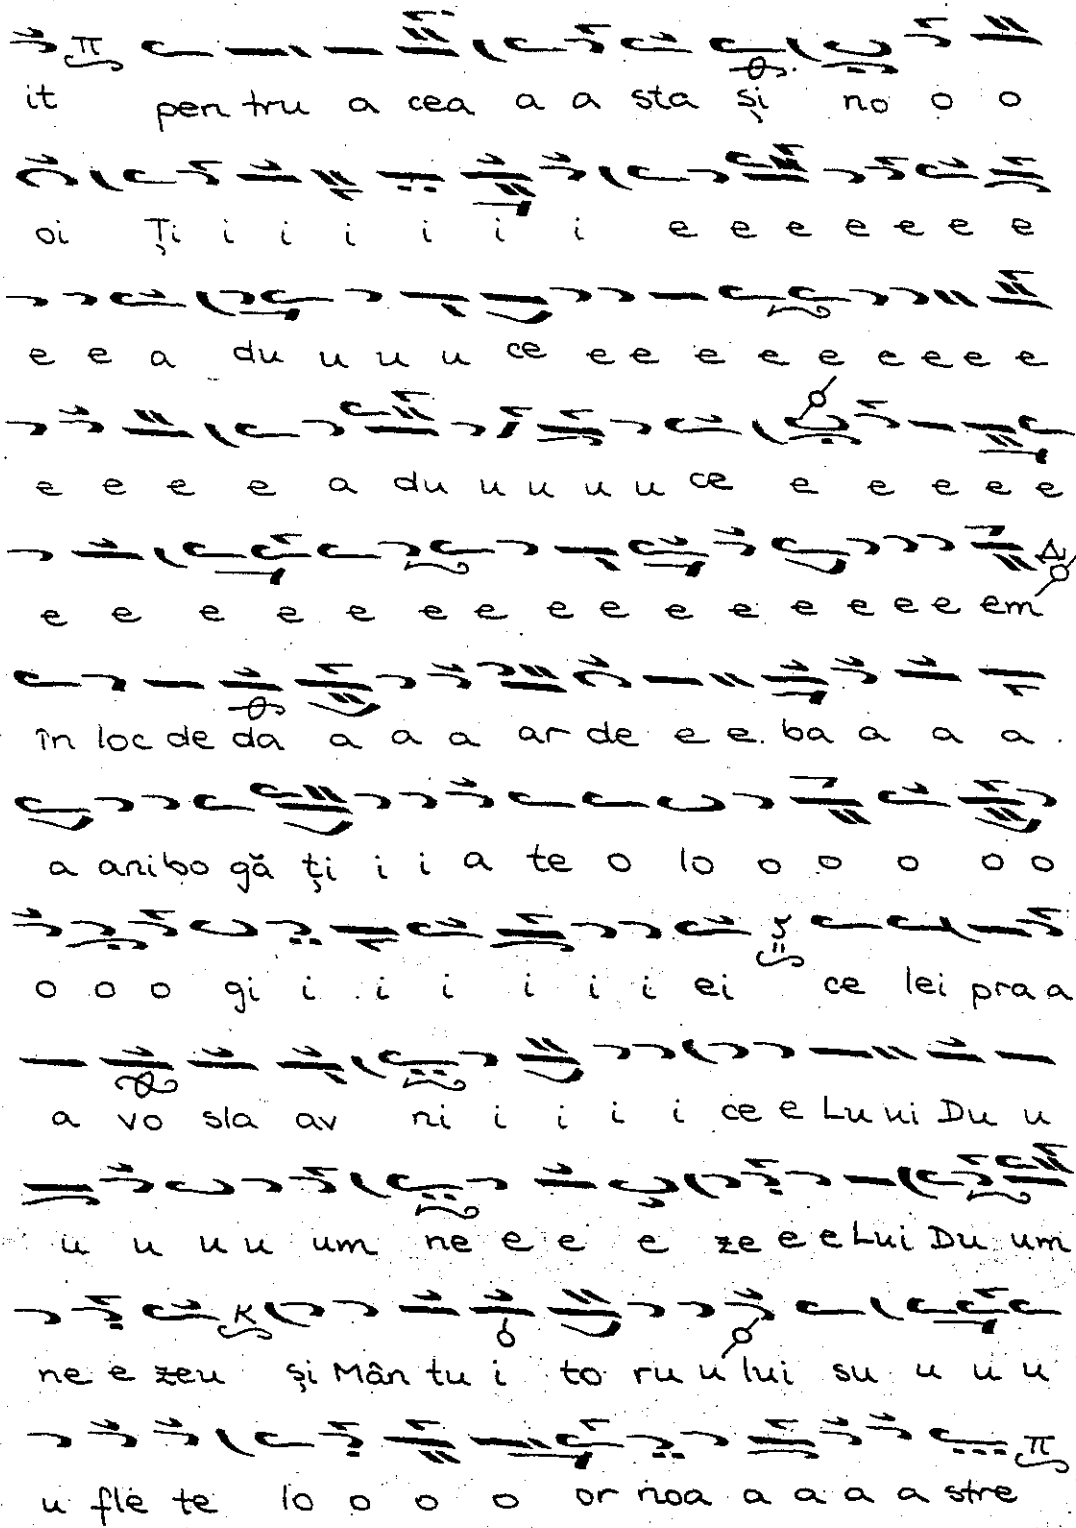 it pen tru a cea a a sta și no o o
oi Ți i i i i i i e e e e e e e
e e a du u u u ce e e e e e e e e e
e e e e a du u u u u ce e e e e e
e e e e e e e e e e e e e e e em
în loc de da a a a ar de e e. ba a a a.
a ani bo gă ți i i a te o lo o o o o o
o o o gi i i i i i i ei ce lei pra a
a vo sla av ni i i i i ce e Lu ui Du u
u u u u um ne e e e ze e e Lui Du um
ne e zeu și Mân tu i to ru u lui su u u u
u fle te lo o o o or noa a a a a stre